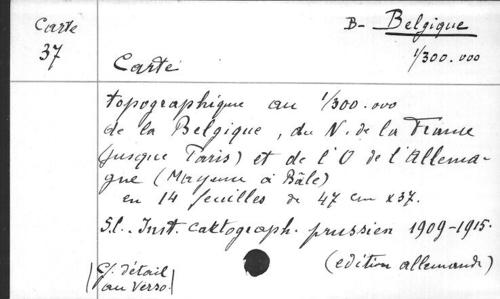 Carte
37
B- Belgique
1/300.000
Carte
topographique au 1/300.000
de la Belgique, du N. de la France
(jusque Paris) et de l'O de l'Allema-
gne (Mayence à Bâle)
en 14 feuilles de 47 cm x 37.
S.l. Inst. cartograph. prussien 1909-1915.
(edition allemande)
(cf. détail
au verso.)